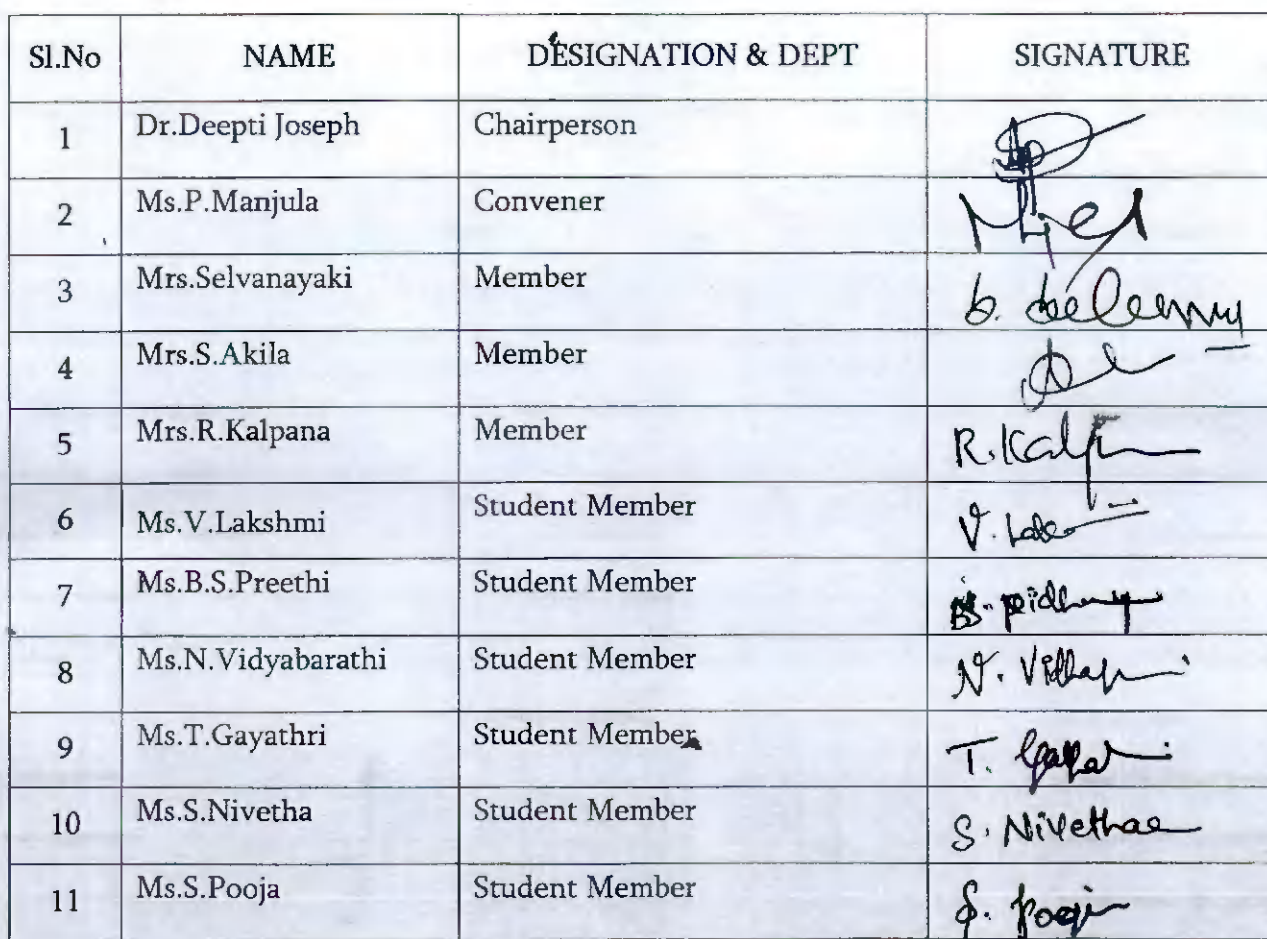 Sl.No NAME DESIGNATION & DEPT SIGNATURE
1 Dr.Deepti Joseph Chairperson
2 Ms.P.Manjula Convener
3 Mrs.Selvanayaki Member
4 Mrs.S.Akila Member
5 Mrs.R.Kalpana Member R.Kalp
6 Ms.V.Lakshmi Student Member V.
7 Ms.B.S.Preethi Student Member
8 Ms.N.Vidyabarathi Student Member N.
9 Ms.T.Gayathri Student Member T.
10 Ms.S.Nivetha Student Member S. Nivethaa
11 Ms.S.Pooja Student Member S.